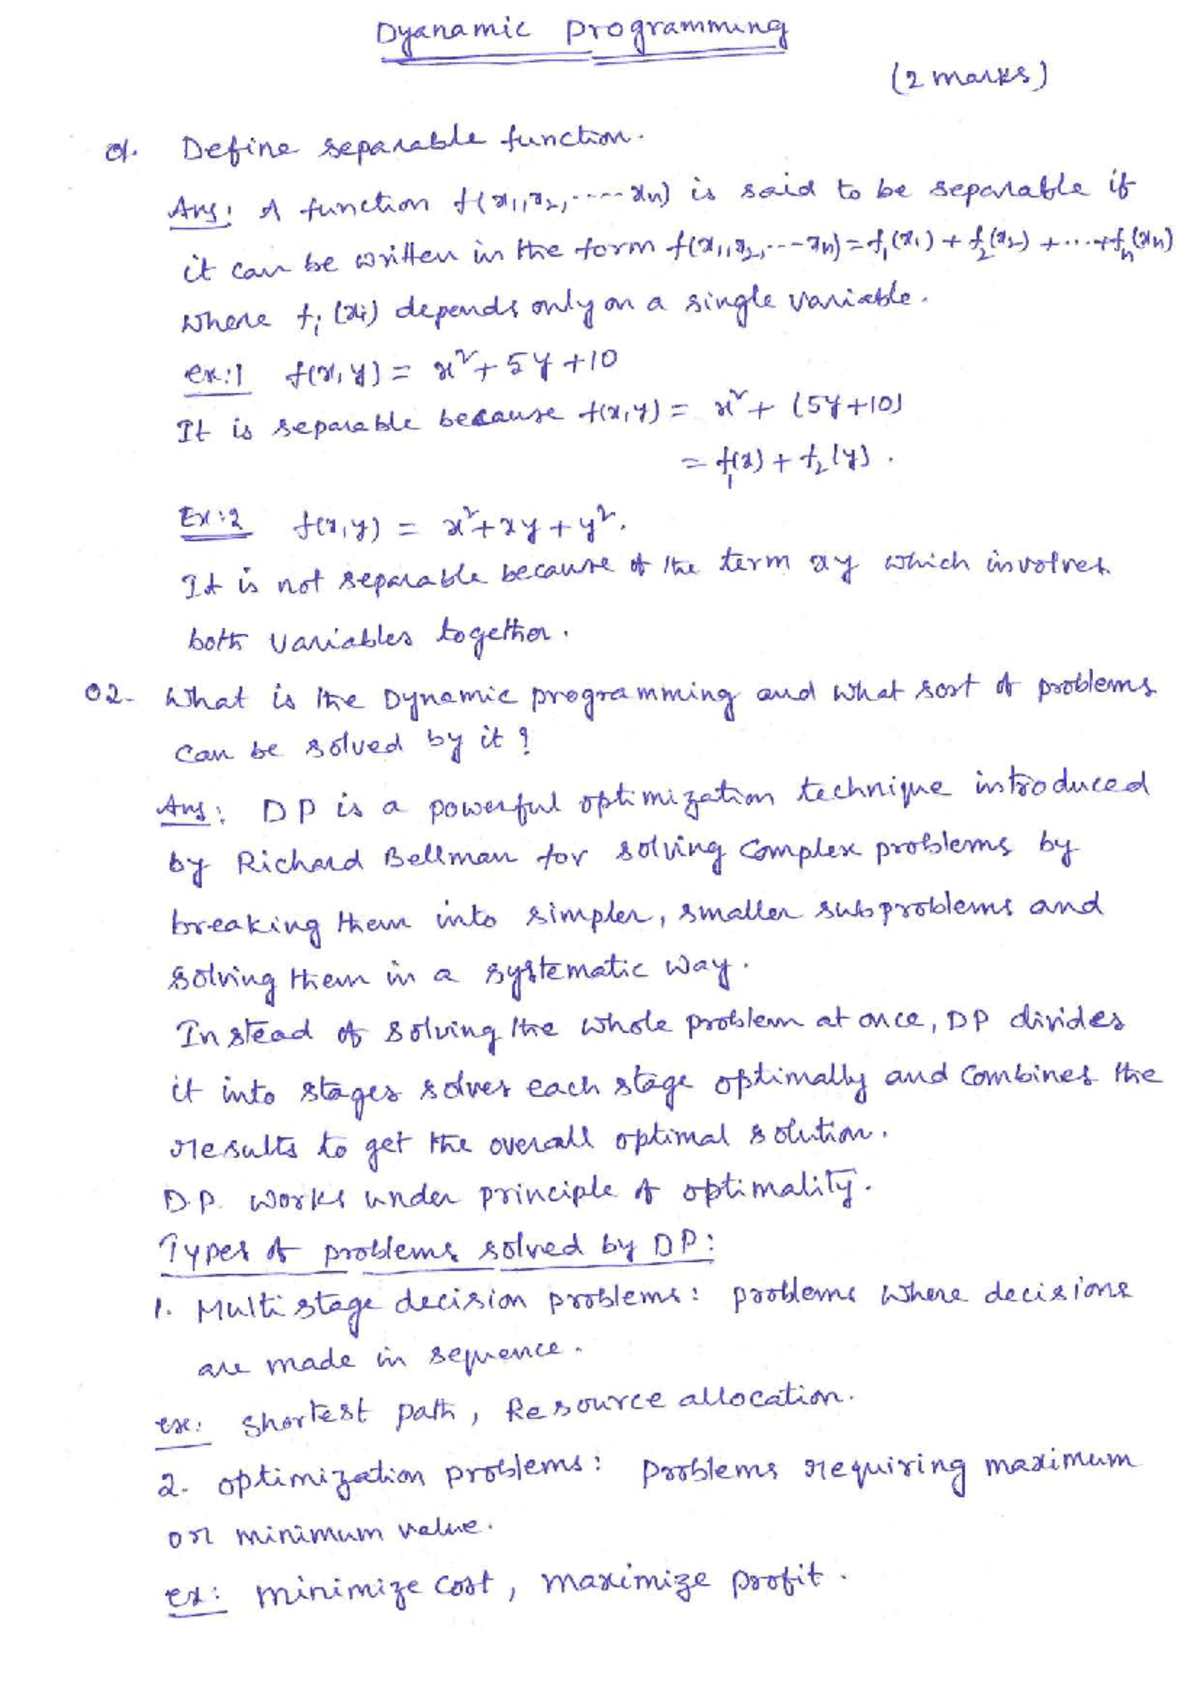 Dyanamic Programming
(2 marks)
01. Define separable function.
Ans: A function f(x₁,x₂,....xn) is said to be separable if
it can be written in the form f(x₁,x₂,...xn) = f₁(x₁) + f₂(x₂) + ... + fn(xn)
where fi (xi) depends only on a single variable.
ex:1 f(x,y) = x² + 5y + 10
It is separable because f(x,y) = x² + (5y+10)
= f₁(x) + f₂(y).
Ex:2 f(x,y) = x² + xy + y².
It is not separable because of the term xy which involves
both variables together.
02. What is the Dynamic programming and what sort of problems
can be solved by it?
Ans: DP is a powerful optimization technique introduced
by Richard Bellman for solving complex problems by
breaking them into simpler, smaller subproblems and
solving them in a systematic way.
Instead of solving the whole problem at once, DP divides
it into stages solves each stage optimally and combines the
results to get the overall optimal solution.
D.P. works under principle of optimality.
Types of problems solved by DP:
1. Multi stage decision problems: problems where decisions
are made in sequence.
ex: shortest path, Resource allocation.
2. optimization problems: problems requiring maximum
or minimum value.
ex: minimize cost, maximize profit.